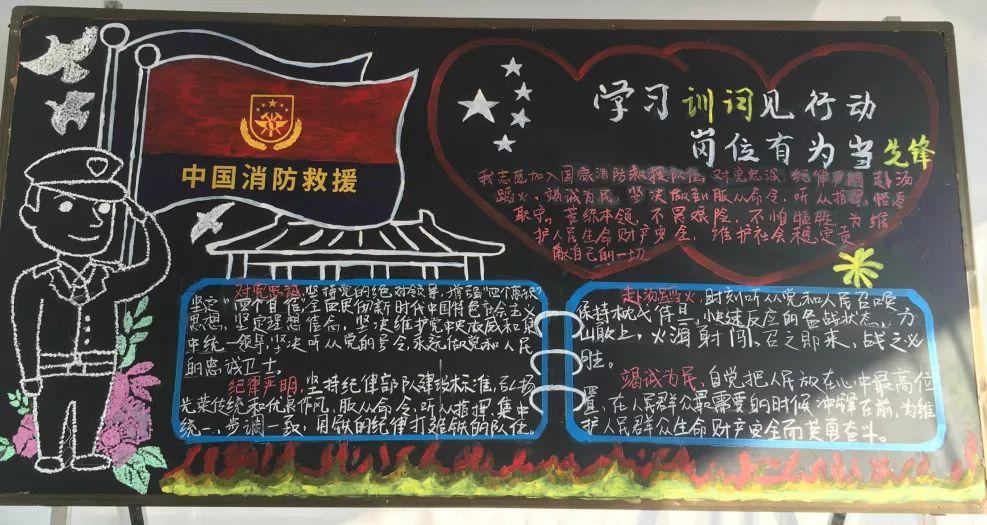 中国消防救援
学习训词见行动
岗位有为当先锋
我志愿加入国家消防救援队伍,对党忠诚,纪律严明,赴汤
蹈火、竭诚为民,坚决做到服从命令、听从指挥,恪尽
职守、苦练本领,不畏艰险、不怕牺牲,为维
护人民生命财产安全,维护社会稳定贡
献自己的一切
对党忠诚,坚持党的绝对领导,增强"四个意识"
坚定"四个自信",全面贯彻新时代中国特色社会主义
思想,坚定理想信念,坚决维护党中央权威和集
中统一领导,坚决听从党的号令,永远做党和人民
的忠诚卫士。
纪律严明,坚持纪律部队建设标准,弘扬
光荣传统和优良作风,服从命令,听从指挥,集中
统一、步调一致,用铁的纪律打造铁的队伍。
赴汤蹈火,时刻听从党和人民召唤
保持枕戈待旦,快速反应的备战状态,刀
山敢上,火海敢闯,召之即来,战之必
胜。
竭诚为民,自觉把人民放在心中最高位
置,在人民群众最需要的时候冲锋在前,为维
护人民群众生命财产安全而英勇奋斗。